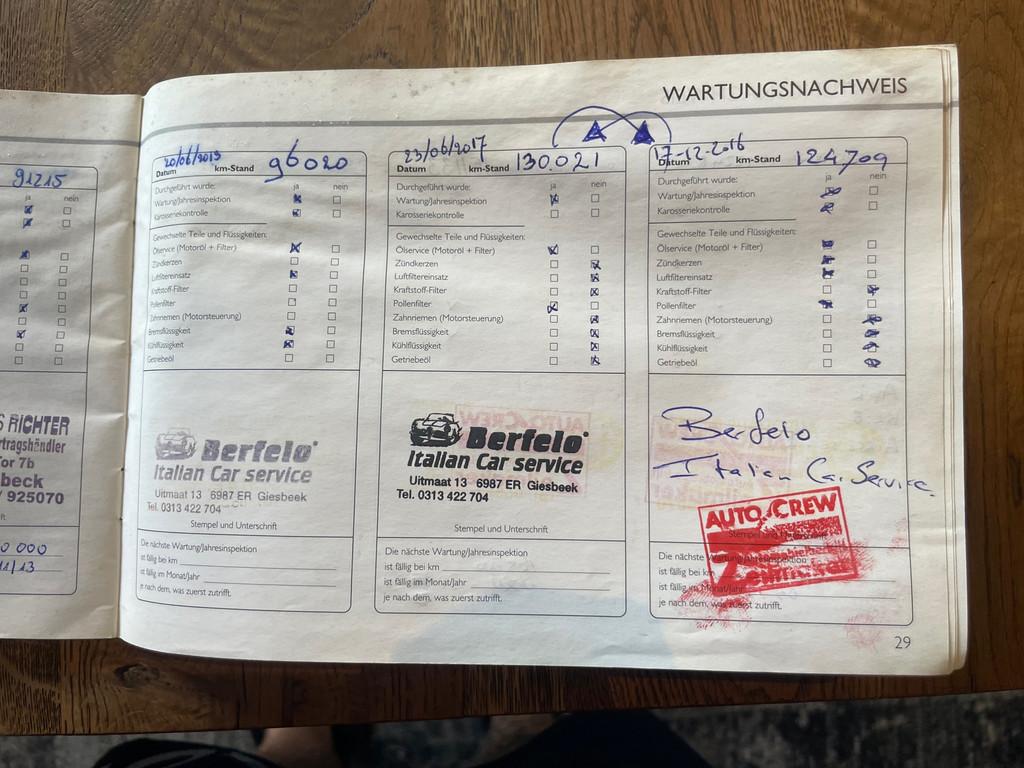 WARTUNGSNACHWEIS
91215
ja nein
S RICHTER
rtragshändler
or 7b
beck
/ 925070
0 000
11/13
20/06/2013 96020
Datum km-Stand
Durchgeführt wurde: ja nein
Wartung/Jahresinspektion
Karosseriekontrolle
Gewechselte Teile und Flüssigkeiten:
Ölservice (Motoröl + Filter)
Zündkerzen
Luftfiltereinsatz
Kraftstoff-Filter
Pollenfilter
Zahnriemen (Motorsteuerung)
Bremsflüssigkeit
Kühlflüssigkeit
Getriebeöl
Berfelo
Italian Car service
Uitmaat 13 6987 ER Giesbeek
Tel. 0313 422 704
Stempel und Unterschrift
Die nächste Wartung/Jahresinspektion
ist fällig bei km
ist fällig im Monat/Jahr
je nach dem, was zuerst zutrifft.
23/06/2017 130.021
Datum km-Stand
Durchgeführt wurde: ja nein
Wartung/Jahresinspektion
Karosseriekontrolle
Gewechselte Teile und Flüssigkeiten:
Ölservice (Motoröl + Filter)
Zündkerzen
Luftfiltereinsatz
Kraftstoff-Filter
Pollenfilter
Zahnriemen (Motorsteuerung)
Bremsflüssigkeit
Kühlflüssigkeit
Getriebeöl
Berfelo
Italian Car service
Uitmaat 13 6987 ER Giesbeek
Tel. 0313 422 704
Stempel und Unterschrift
Die nächste Wartung/Jahresinspektion
ist fällig bei km
ist fällig im Monat/Jahr
je nach dem, was zuerst zutrifft.
17-12-2016 124709
Datum km-Stand
Durchgeführt wurde: ja nein
Wartung/Jahresinspektion
Karosseriekontrolle
Gewechselte Teile und Flüssigkeiten:
Ölservice (Motoröl + Filter)
Zündkerzen
Luftfiltereinsatz
Kraftstoff-Filter
Pollenfilter
Zahnriemen (Motorsteuerung)
Bremsflüssigkeit
Kühlflüssigkeit
Getriebeöl
Berfelo
Italian Car Service.
AUTO CREW
Stempel und
Die nächste Wartung/Jahresinspektion
ist fällig bei km
ist fällig im Monat/Jahr
je nach dem, was zuerst zutrifft.
29